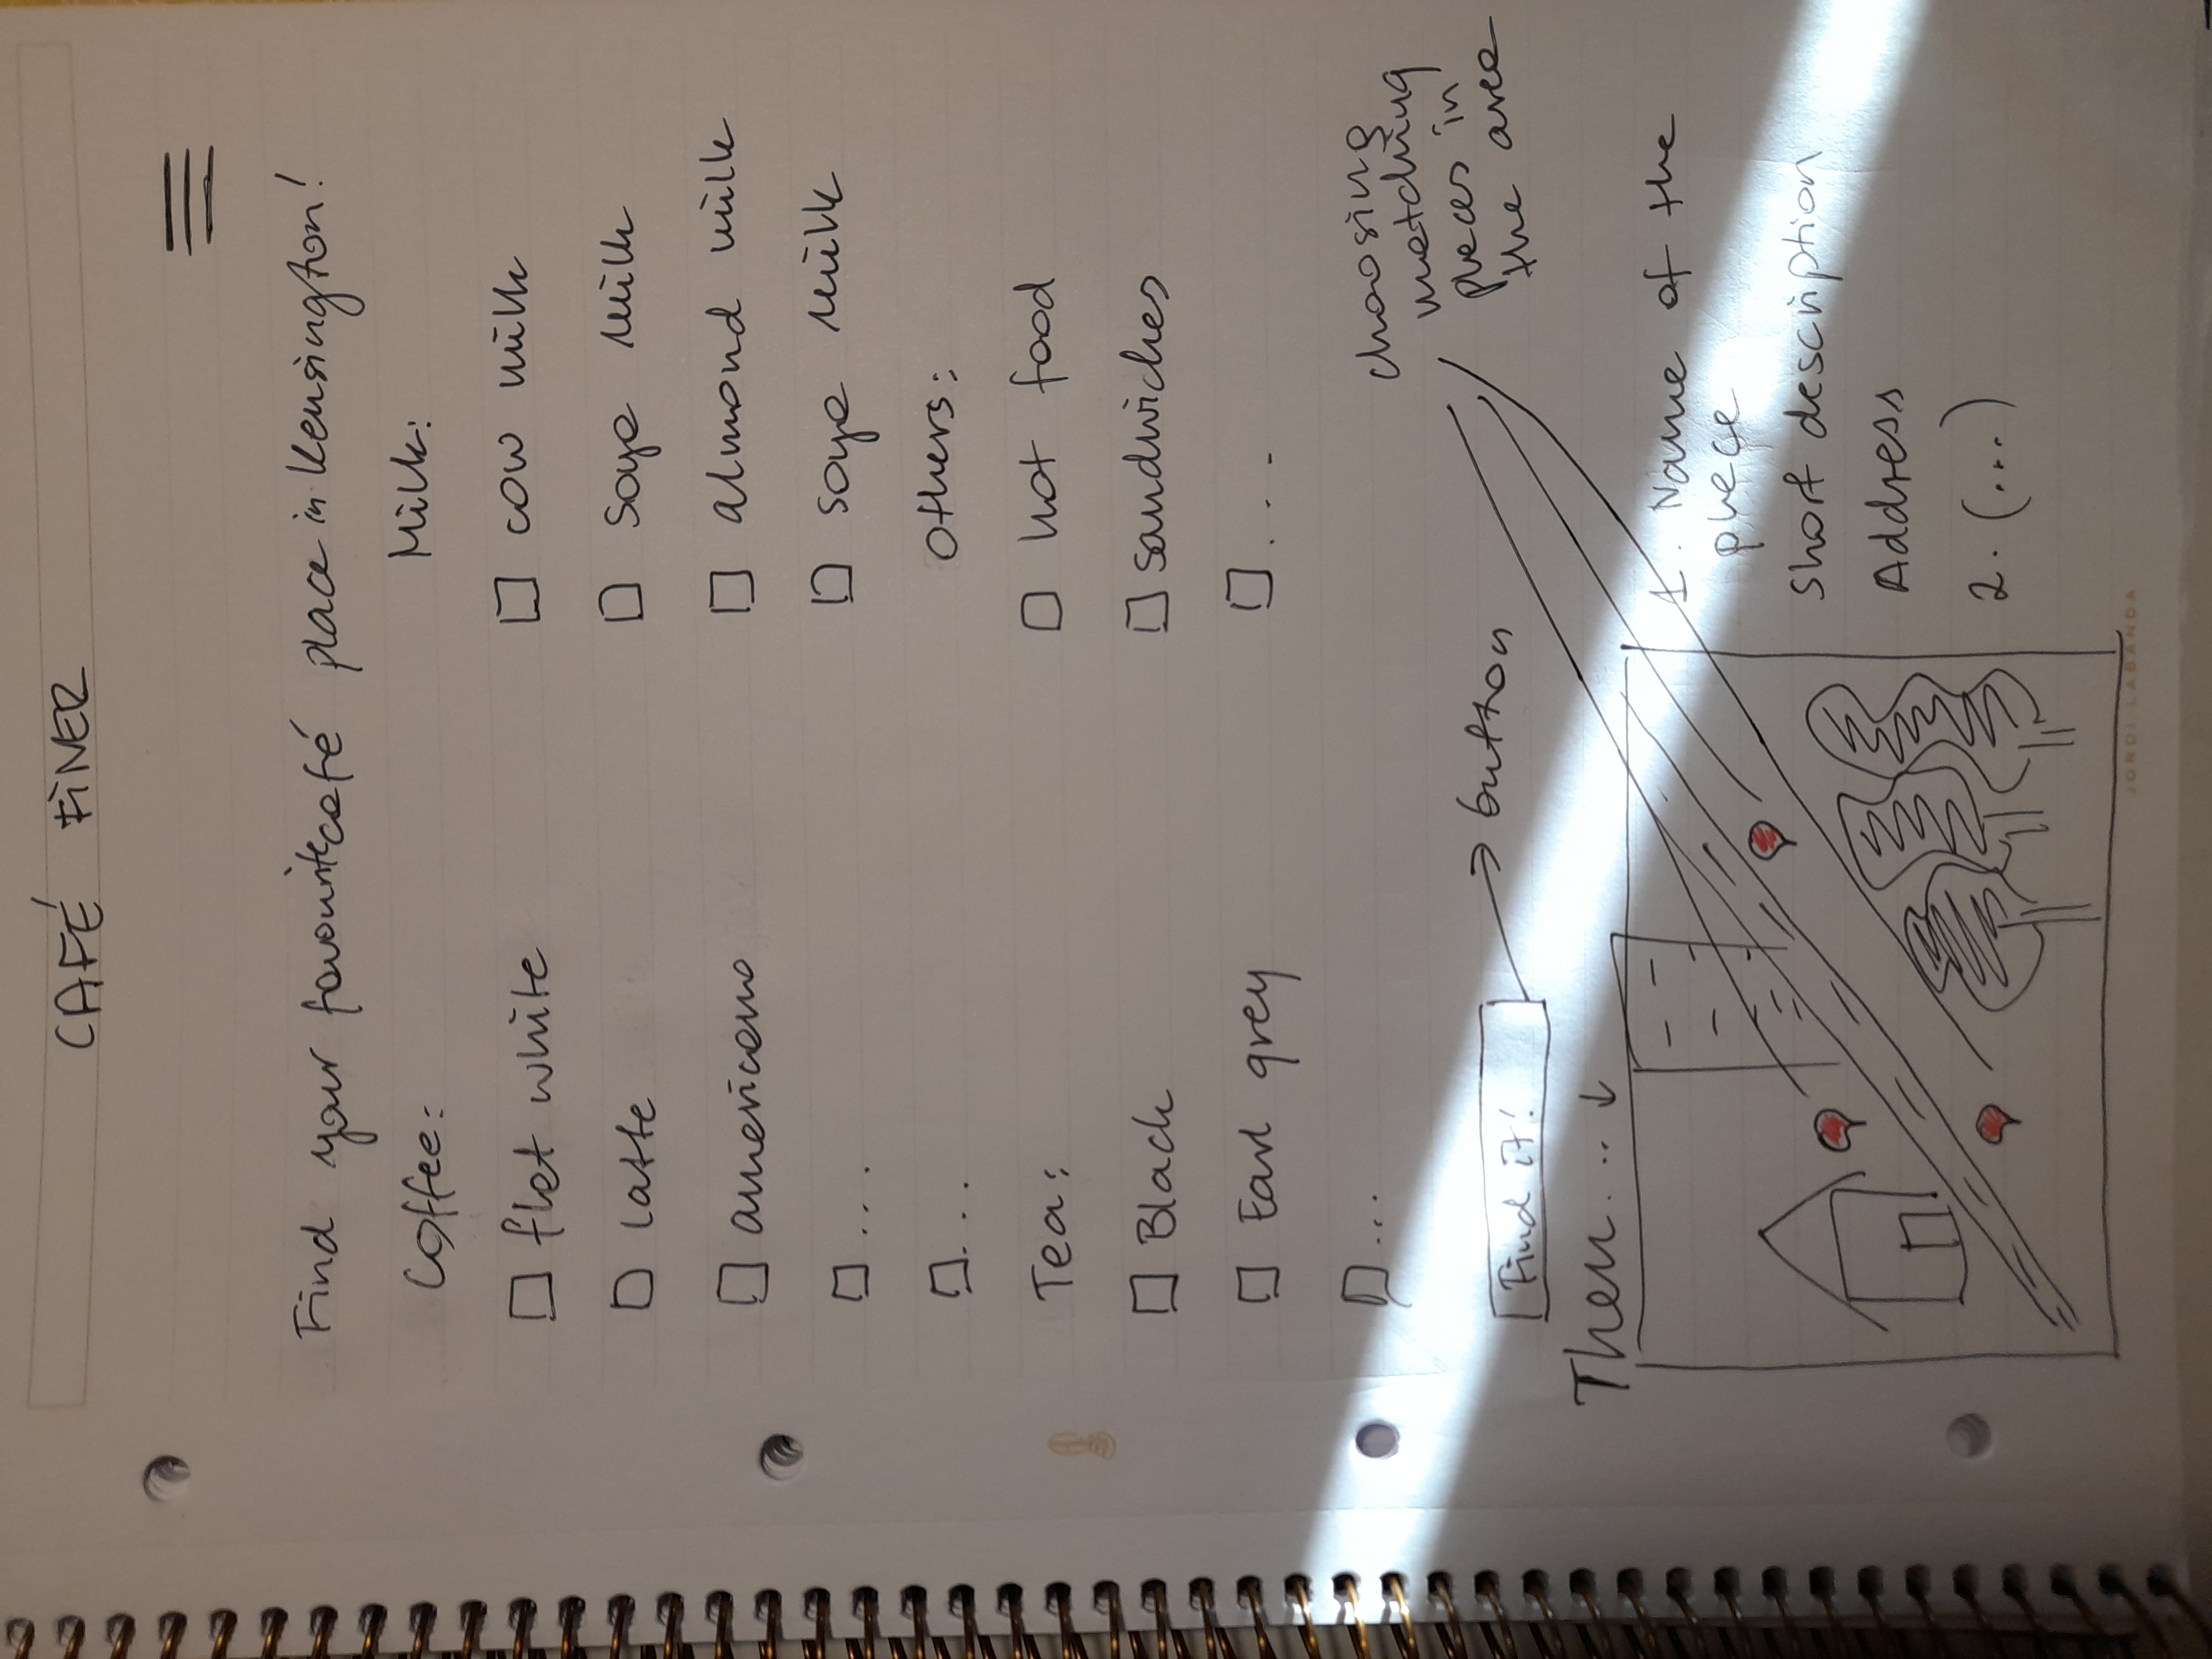 CAFÉ FINER
Find your favourite café place in Kensington!
Coffee:
flat white
latte
americano
...
...
Tea:
Black
Earl grey
...
Milk:
cow milk
soya milk
almond milk
soya milk
Others:
hot food
sandwiches
...
Find it!
button
choosing
matching
places in
the area
Then... ↓
1. Name of the
place
short description
Address
2. (...)
JORDI LABANDA